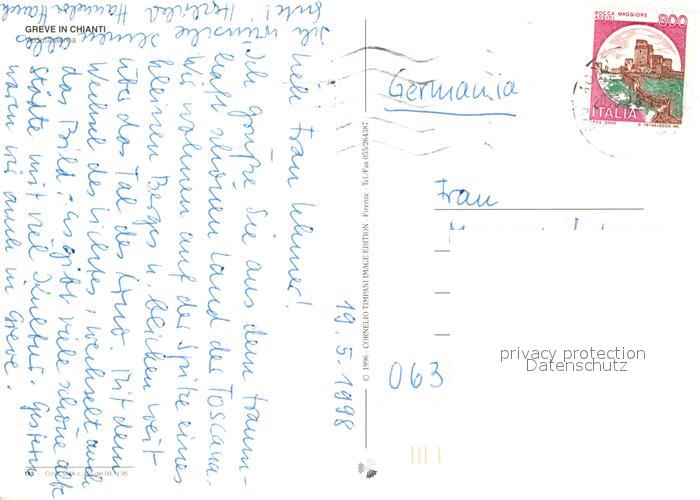 GREVE IN CHIANTI
19.5.1998
Frau
Ich grüße Sie aus dem traum-
haft schönen Land der Toscana.
Wir wohnen auf der Spitze eines
kleinen Berges u. blicken weit
über das Tal des Arno. Mit dem
Wechsel des Lichtes, wechselt auch
das Bild. Es gibt viele schöne alte
Städte mit viel Kultur. Gestern
waren wir auch in Greve.
Ich wünsche Ihnen
Gute! Herzlichst
© 1996 - CORNELIO TIMPANI IMAGE EDITION - Firenze - Tel./Fax 055/264387
ROCCA MAGGIORE
ASSISI
800
ITALIA
Germania
Frau
063
privacy protection
Datenschutz